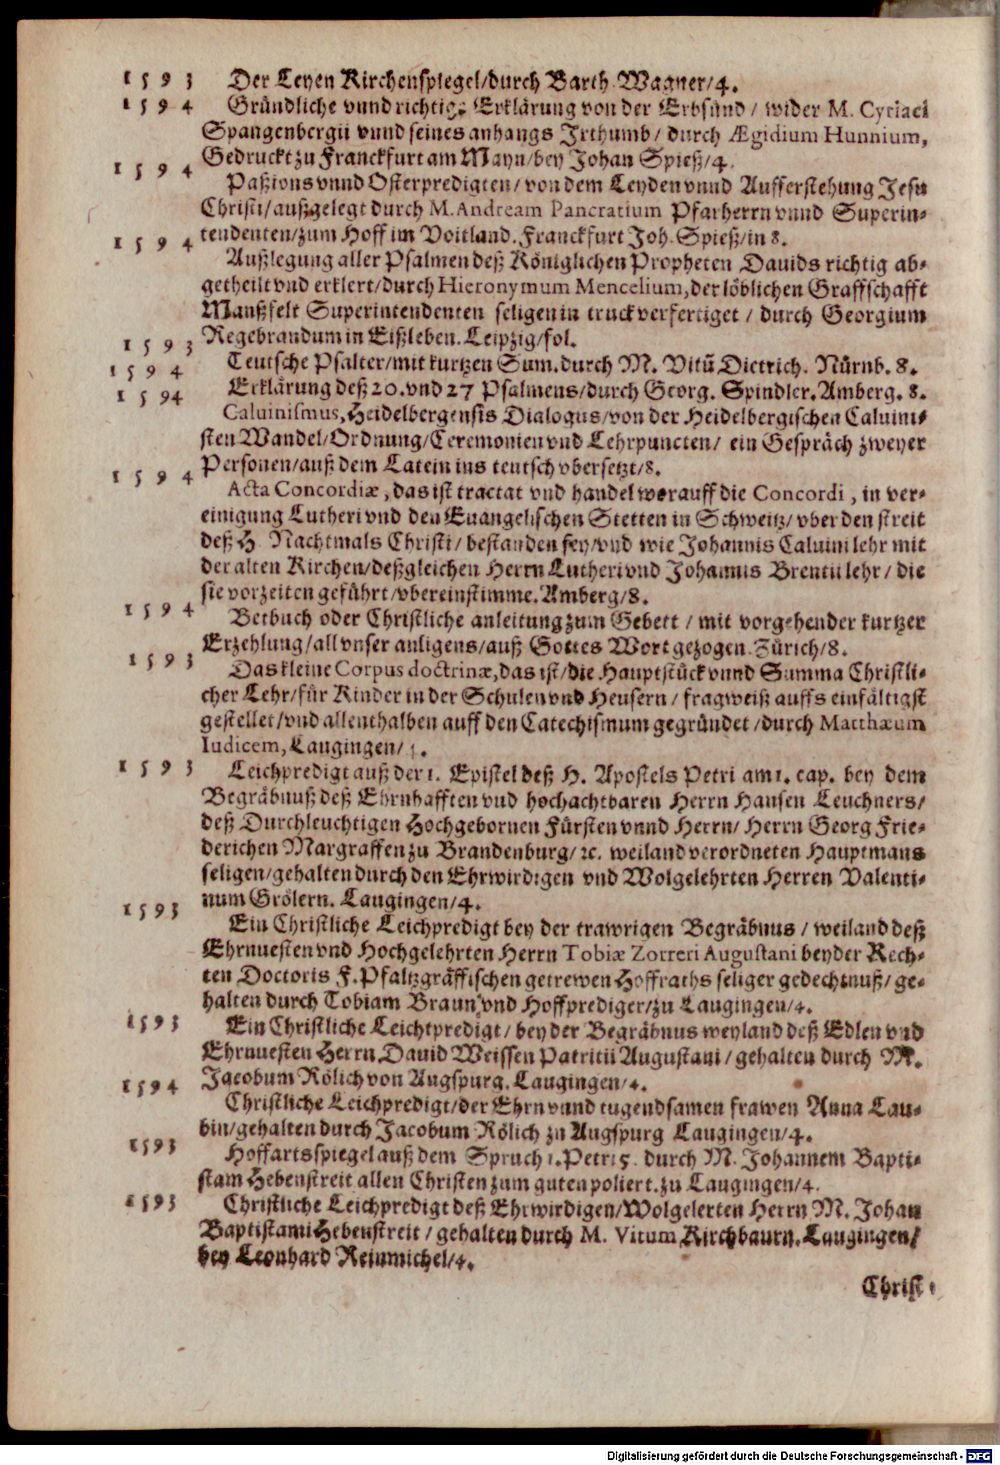 1593 Der Leyen Kirchenspiegel/durch Barth. Wagner/4.
1594 Gründliche vnnd richtige Erklärung von der Erbsünd / wider M. Cyriaci
Spangenbergii vnnd seines anhangs Jrthumb / durch Ægidium Hunnium,
Gedruckt zu Franckfurt am Mayn/bey Johan Spieß/4.
1594 Paßions vnnd Osterpredigten/ von dem Leyden vnnd Aufferstehung Jesu
Christi/außgelegt durch M. Andream Pancratium Pfarherrn vnnd Superin-
tendenten/zum Hoff im Voitland. Franckfurt Joh. Spieß/in 8.
1594 Außlegung aller Psalmen deß Königlichen Propheten Dauids richtig ab-
getheilt vnd erklert/durch Hieronymum Mencelium, der löblichen Graffschafft
Manßfelt Superintendenten seligen in truck verfertiget / durch Georgium
Regebrandum in Eißleben. Leipzig/fol.
1593 Teutsche Psalter/mit kurtzen Sum. durch M. Vitũ Dietrich. Nürnb. 8.
1594 Erklärung deß 20. vnd 27 Psalmens/durch Georg. Spindler. Amberg. 8.
1594 Caluinismus, Heidelbergensis Dialogus/von der Heidelbergischen Caluini-
sten Wandel/Ordnung/Ceremonien vnd Lehrpuncten/ ein Gespräch zweyer
Personen/auß dem Latein ins teutsch vbersetzt/8.
1594 Acta Concordiæ, das ist tractat vnd handel worauff die Concordi, in ver-
einigung Lutheri vnd den Euangelischen Stetten in Schweitz/ vber den streit
deß H. Nachtmals Christi/ bestanden sey/vnd wie Johannis Caluini lehr mit
der alten Kirchen/deßgleichen Herrn Lutheri vnd Johannis Brentii lehr / die
sie vorzeiten geführt/vbereinstimme. Amberg/8.
1594 Betbuch oder Christliche anleitung zum Gebett / mit vorgehender kurtzer
Erzehlung/all vnser anligens/auß Gottes Wort gezogen. Zürich/8.
1593 Das kleine Corpus doctrinæ, das ist/die Hauptstück vnnd Summa Christli-
cher Lehr/für Kinder in der Schulen vnd Heusern / fragweiß auffs einfältigst
gestellet/vnd allenthalben auff den Catechismum gegründet/durch Matthæum
Iudicem, Laugingen/
1593 Leichpredigt auß der 1. Epistel deß H. Apostels Petri am 1. cap. bey dem
Begräbnuß deß Ehrnhafften vnd hochachtbaren Herrn Hansen Leuchners/
deß Durchleuchtigen Hochgebornen Fürsten vnnd Herrn/ Herrn Georg Frie-
derichen Margraffen zu Brandenburg/ꝛc. weiland verordneten Hauptmans
seligen/gehalten durch den Ehrwirdigen vnd Wolgelehrten Herren Valenti-
num Grölern. Laugingen/4.
1593 Ein Christliche Leichpredigt bey der trawrigen Begräbnus / weiland deß
Ehrnuesten vnd Hochgelehrten Herrn Tobiæ Zorreri Augustani beyder Rech-
ten Doctoris F. Pfaltzgräffischen getrewen Hoffraths seliger gedechtnuß/ ge-
halten durch Tobiam Braun, vnd Hoffprediger/zu Laugingen/4.
1593 Ein Christliche Leichtpredigt/ bey der Begräbnus weyland deß Edlen vnd
Ehrnuesten Herrn Dauid Weissen Patritii Augustani / gehalten durch M.
Jacobum Rölich von Augspurg. Laugingen/4.
1594 Christliche Leichpredigt/der Ehrn vnnd tugendsamen frawen Anna Lau-
bin/gehalten durch Jacobum Rölich zu Augspurg Laugingen/4.
1593 Hoffartsspiegel auß dem Spruch 1. Petri 5. durch M. Johannem Bapti-
stam Hebenstreit allen Christen zum guten poliert. zu Laugingen/4.
1593 Christliche Leichpredigt deß Ehrwirdigen/Wolgelerten Herrn M. Johan
Baptistami Hebenstreit / gehalten durch M. Vitum Kirchbaurn. Laugingen/
bey Leonhard Reinmichel/4.
Christ-
Digitalisierung gefördert durch die Deutsche Forschungsgemeinschaft - DFG